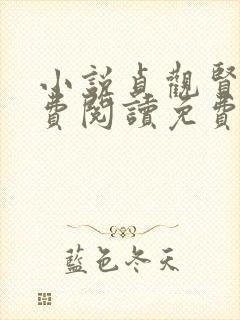 小說貞觀賢
費閱讀免費
藍色冬天